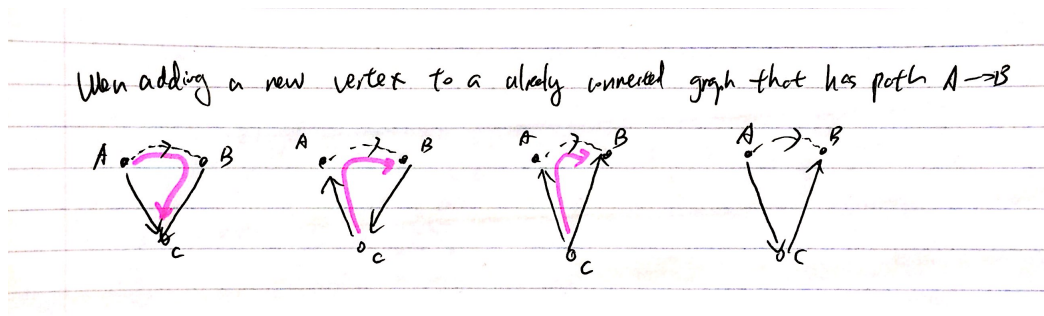 When adding a new vertex to a alredy connected graph that has path A→B
A B A B A B A B
C C C C